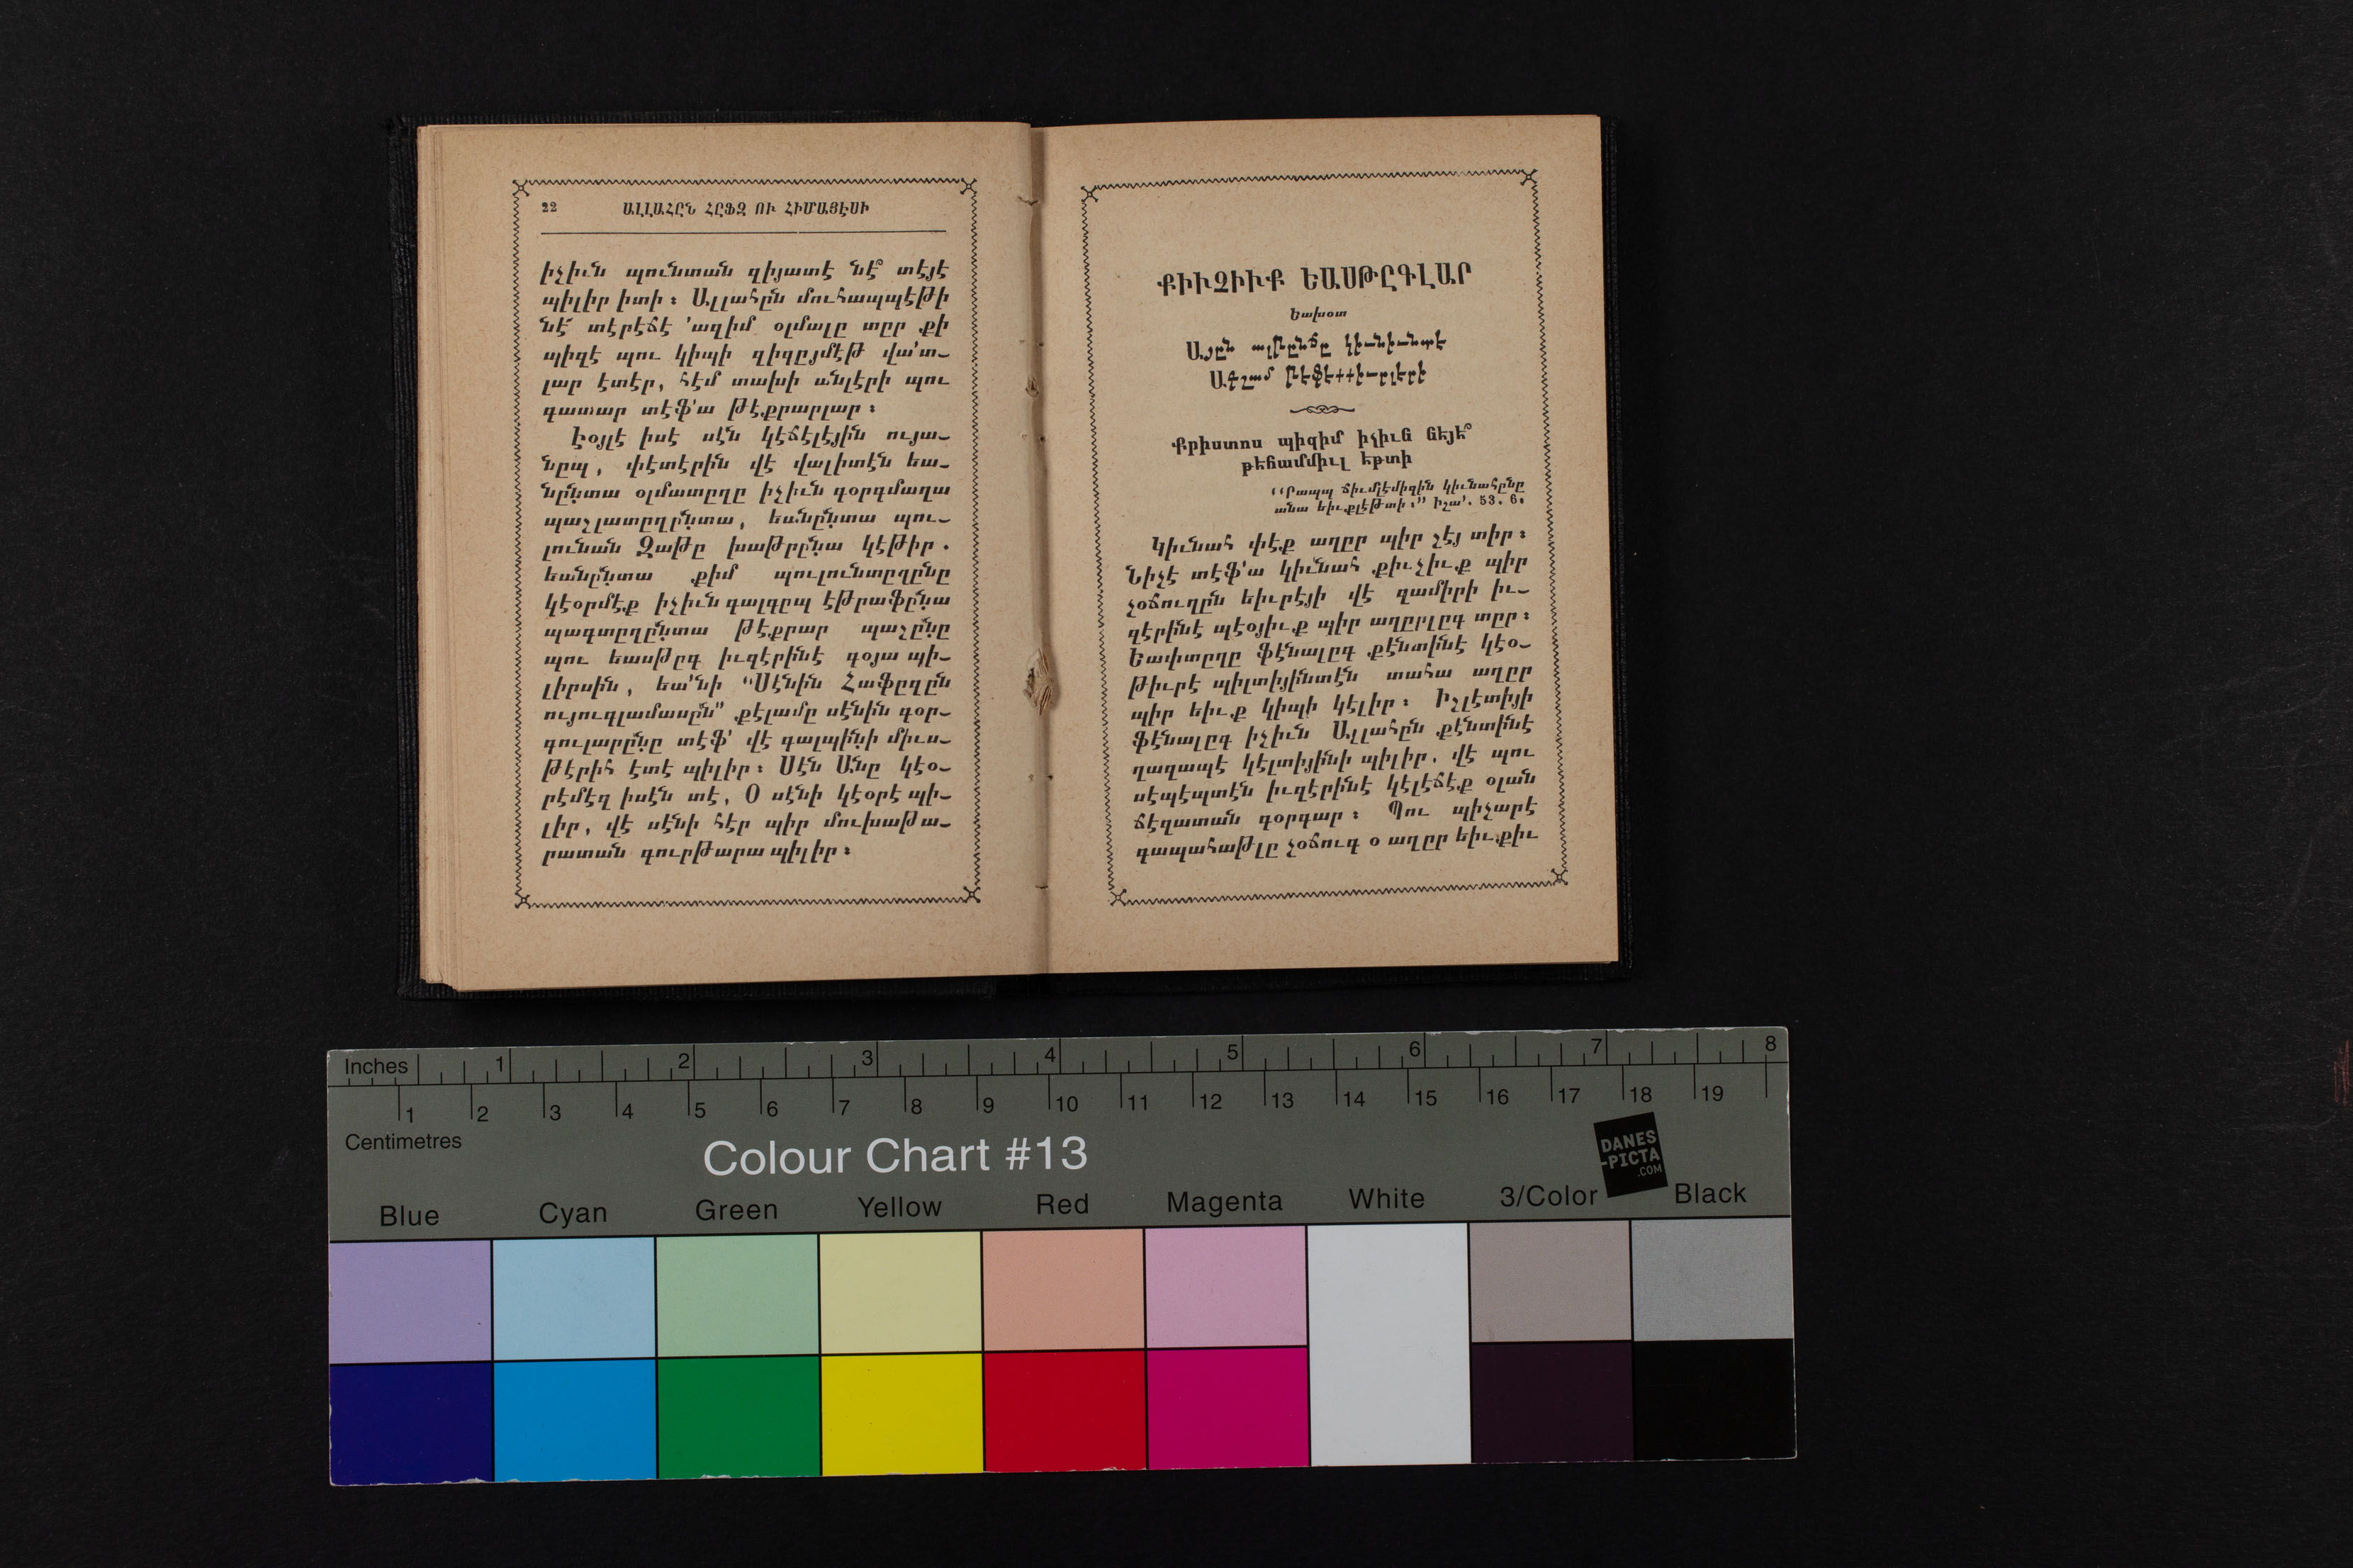 22 ԱԼԼԱՀԸՆ ՀԸՖԶ ՈՒ ՀԻՄԱՅԷՍԻ
իչիւն պունտան զիյատէ նէ՞ տէյէ
պիլիր իտի։ Ալլահըն մուհապպէթի
նէ՛ տէրէճէ ՚ազիմ օլմալը տըր քի
պիզէ պու կիպի գիզըյմէթ վա՚տ–
լար էտէր, հէմ տախի անլէրի պու
գատար տէֆ՚ա թէքրարլար։
Էօյլէ իսէ սէն կէճէլէյին ույա–
նըպ, փէտէրին վէ վալիտէն եա–
նընտա օլմատըղը իչիւն գօրգմաղա
պաշլատըղընտա, եանընտա պու–
լունան Զաթը խաթրընա կէթիր.
եանընտա քիմ պուլունտըղընը
կէօրմէք իչիւն գալգըպ էթրաֆընա
պագտըղընտա թէքրար պաշընը
պու եասթըգ իւզէրինէ գօյա պի–
լիրսին, եա՚նի “Սէնին Հաֆըզըն
ույուգլամասըն” քէլամը սէնին գօր–
գուլարընը տէֆ՚ վէ գալպինի միւս–
թէրիհ էտէ պիլիր։ Սէն Անը կէօ–
րէմէզ իսէն տէ, Օ սէնի կէօրէ պի–
լիր, վէ սէնի հէր պիր մուխաթա–
րատան գուրթարա պիլիր։
ՔԻՒՉԻՒՔ ԵԱՍԹԸԳԼԱՐ
Եախօտ
Այըն ալթընճը կիւնիւնտէ
Ախշամ թէֆէքքիւրլէրի
Քրիստոս պիզիմ իչիւն նեյե՞
թեհամմիւլ եթտի
“Րապպ ճիւմլէմիզին կիւնահընը
անա եիւքլէթտի։” Իշա՚. 53. 6։
Կիւնահ փէք աղըր պիր շէյ տիր։
Նիչէ տէֆ՚ա կիւնահ քիւչիւք պիր
չօճուղըն եիւրէյի վէ զամիրի իւ–
զէրինէ պէօյիւք պիր աղըրլըգ տըր։
Եափտըղը ֆէնալըգ քէնտինէ կէօ–
թիւրէ պիլտիյինտէն տահա աղըր
պիր եիւք կիպի կէլիր։ Իշլէտիյի
ֆէնալըգ իչիւն Ալլահըն քէնտինէ
ղազապէ կէլտիյինի պիլիր, վէ պու
սէպէպտէն իւզէրինէ կէլէճէք օլան
ճէզատան գօրգար։ Պու պիչարէ
գապահաթլը չօճուգ օ աղըր եիւքիւ
Inches 1 2 3 4 5 6 7 8
1 2 3 4 5 6 7 8 9 10 11 12 13 14 15 16 17 18 19
Centimetres
Colour Chart #13
DANES
-PICTA
.COM
Blue Cyan Green Yellow Red Magenta White 3/Color Black